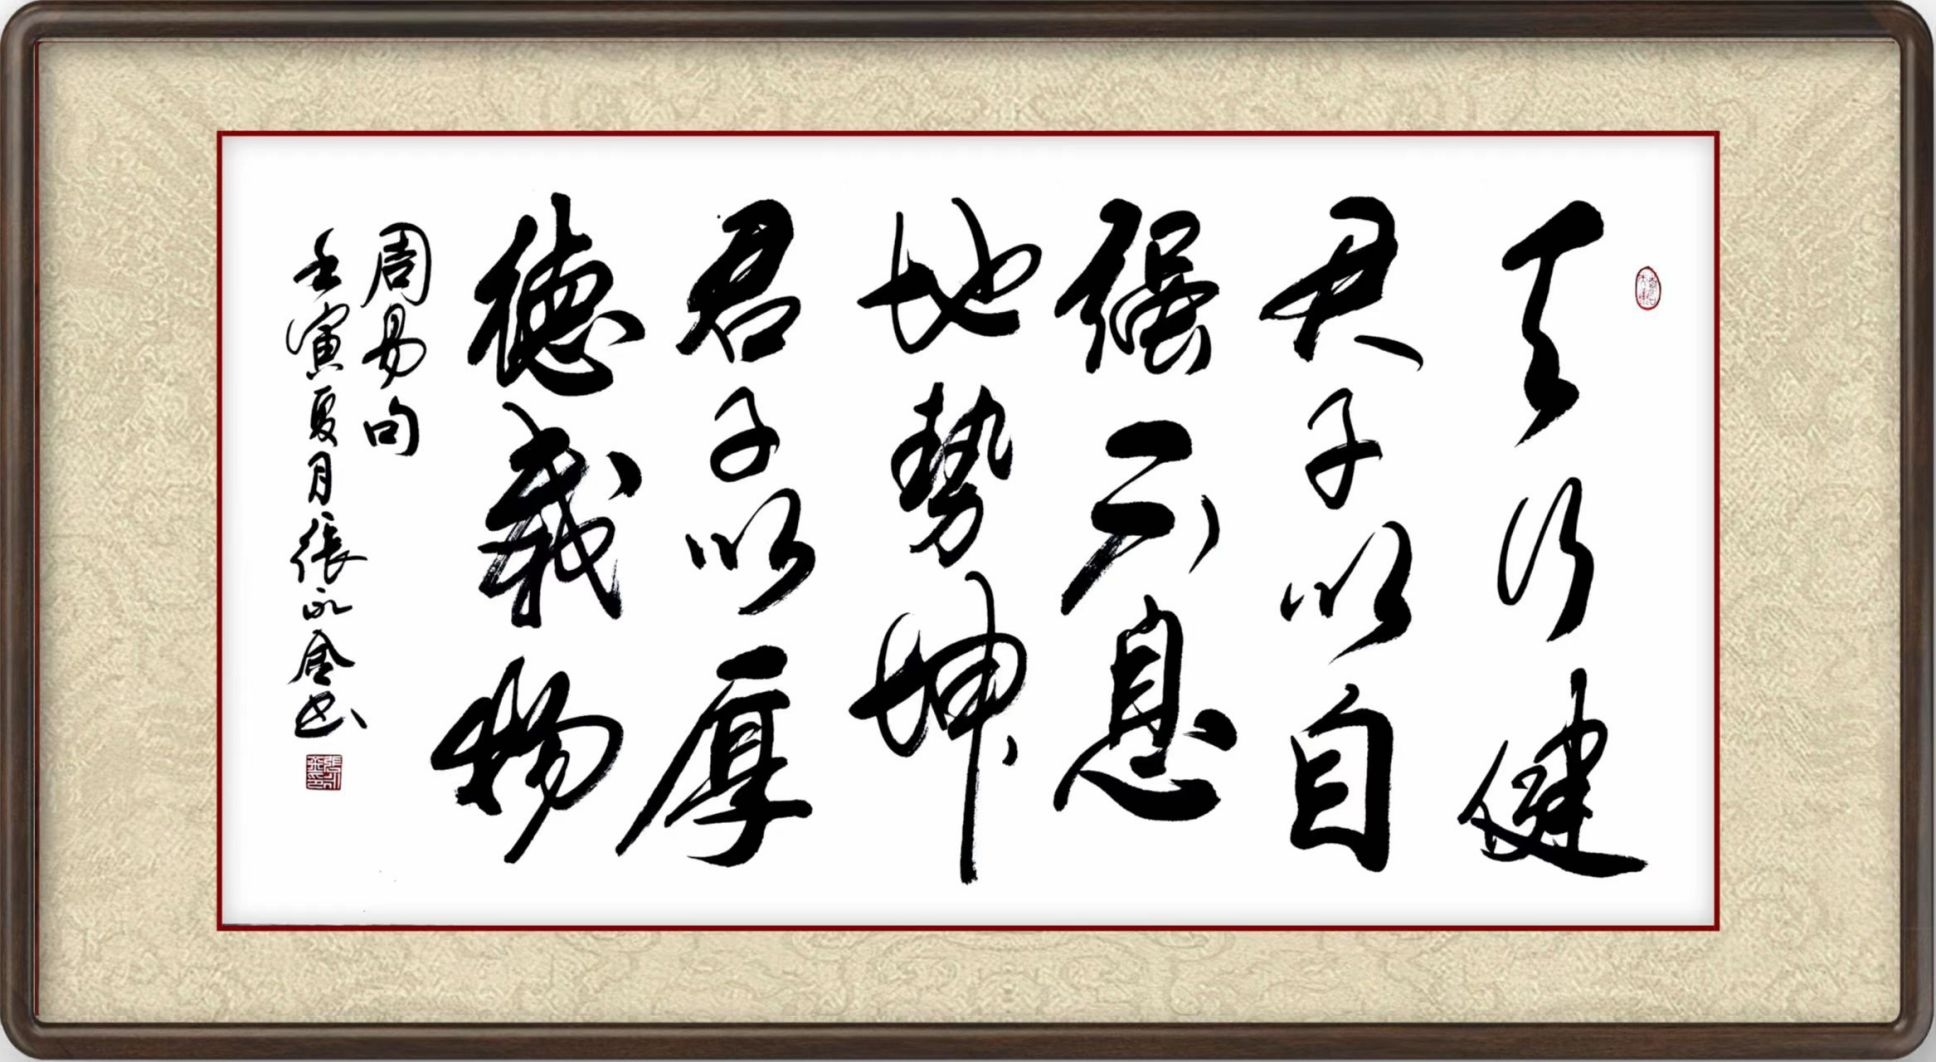 天行健
君子以自
强不息
地势坤
君子以厚
德载物
周易句
壬寅夏月张永金书